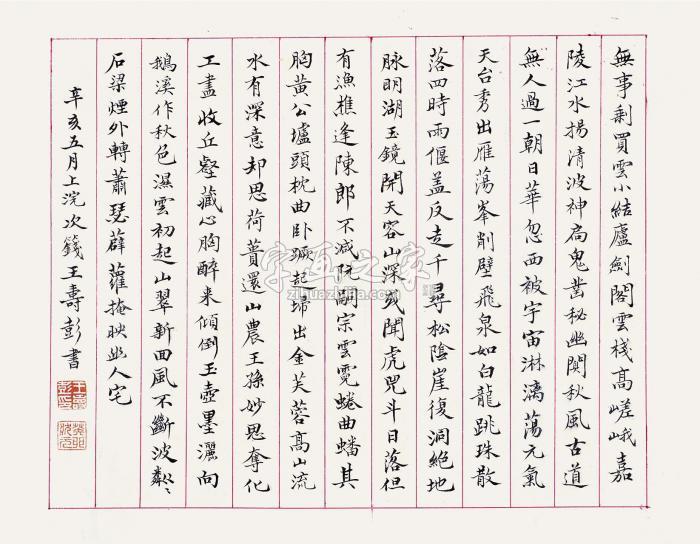 無事剩買雲小結廬劍閣雲棧高嵯峨嘉
陵江水揚清波神扃鬼鑿秘幽閴秋風古道
無人過一朝日華忽西被宇宙淋漓蕩元氣
天台秀出雁蕩峯削壁飛泉如白龍跳珠散
落四時雨偃盖反走千尋松陰崖復洞絕地
脉明湖玉鏡開天容山深或聞虎兕斗日落但
有漁樵逢陳郎不減阮嗣宗雲霓蜷曲蟠其
胸黃公壚頭枕曲卧蹶起埽出金芙蓉高山流
水有深意却思荷蕢還山農王孫妙思奪化
工盡收丘壑藏心胸醉来傾倒玉壺墨灑向
鵝溪作秋色濕雲初起山翠新回風不斷波粼〻
石梁煙外轉蕭瑟薜蘿掩映幽人宅
辛亥五月上浣次籛王壽彭書
王壽彭印
字画之家
zihuazhijia.com